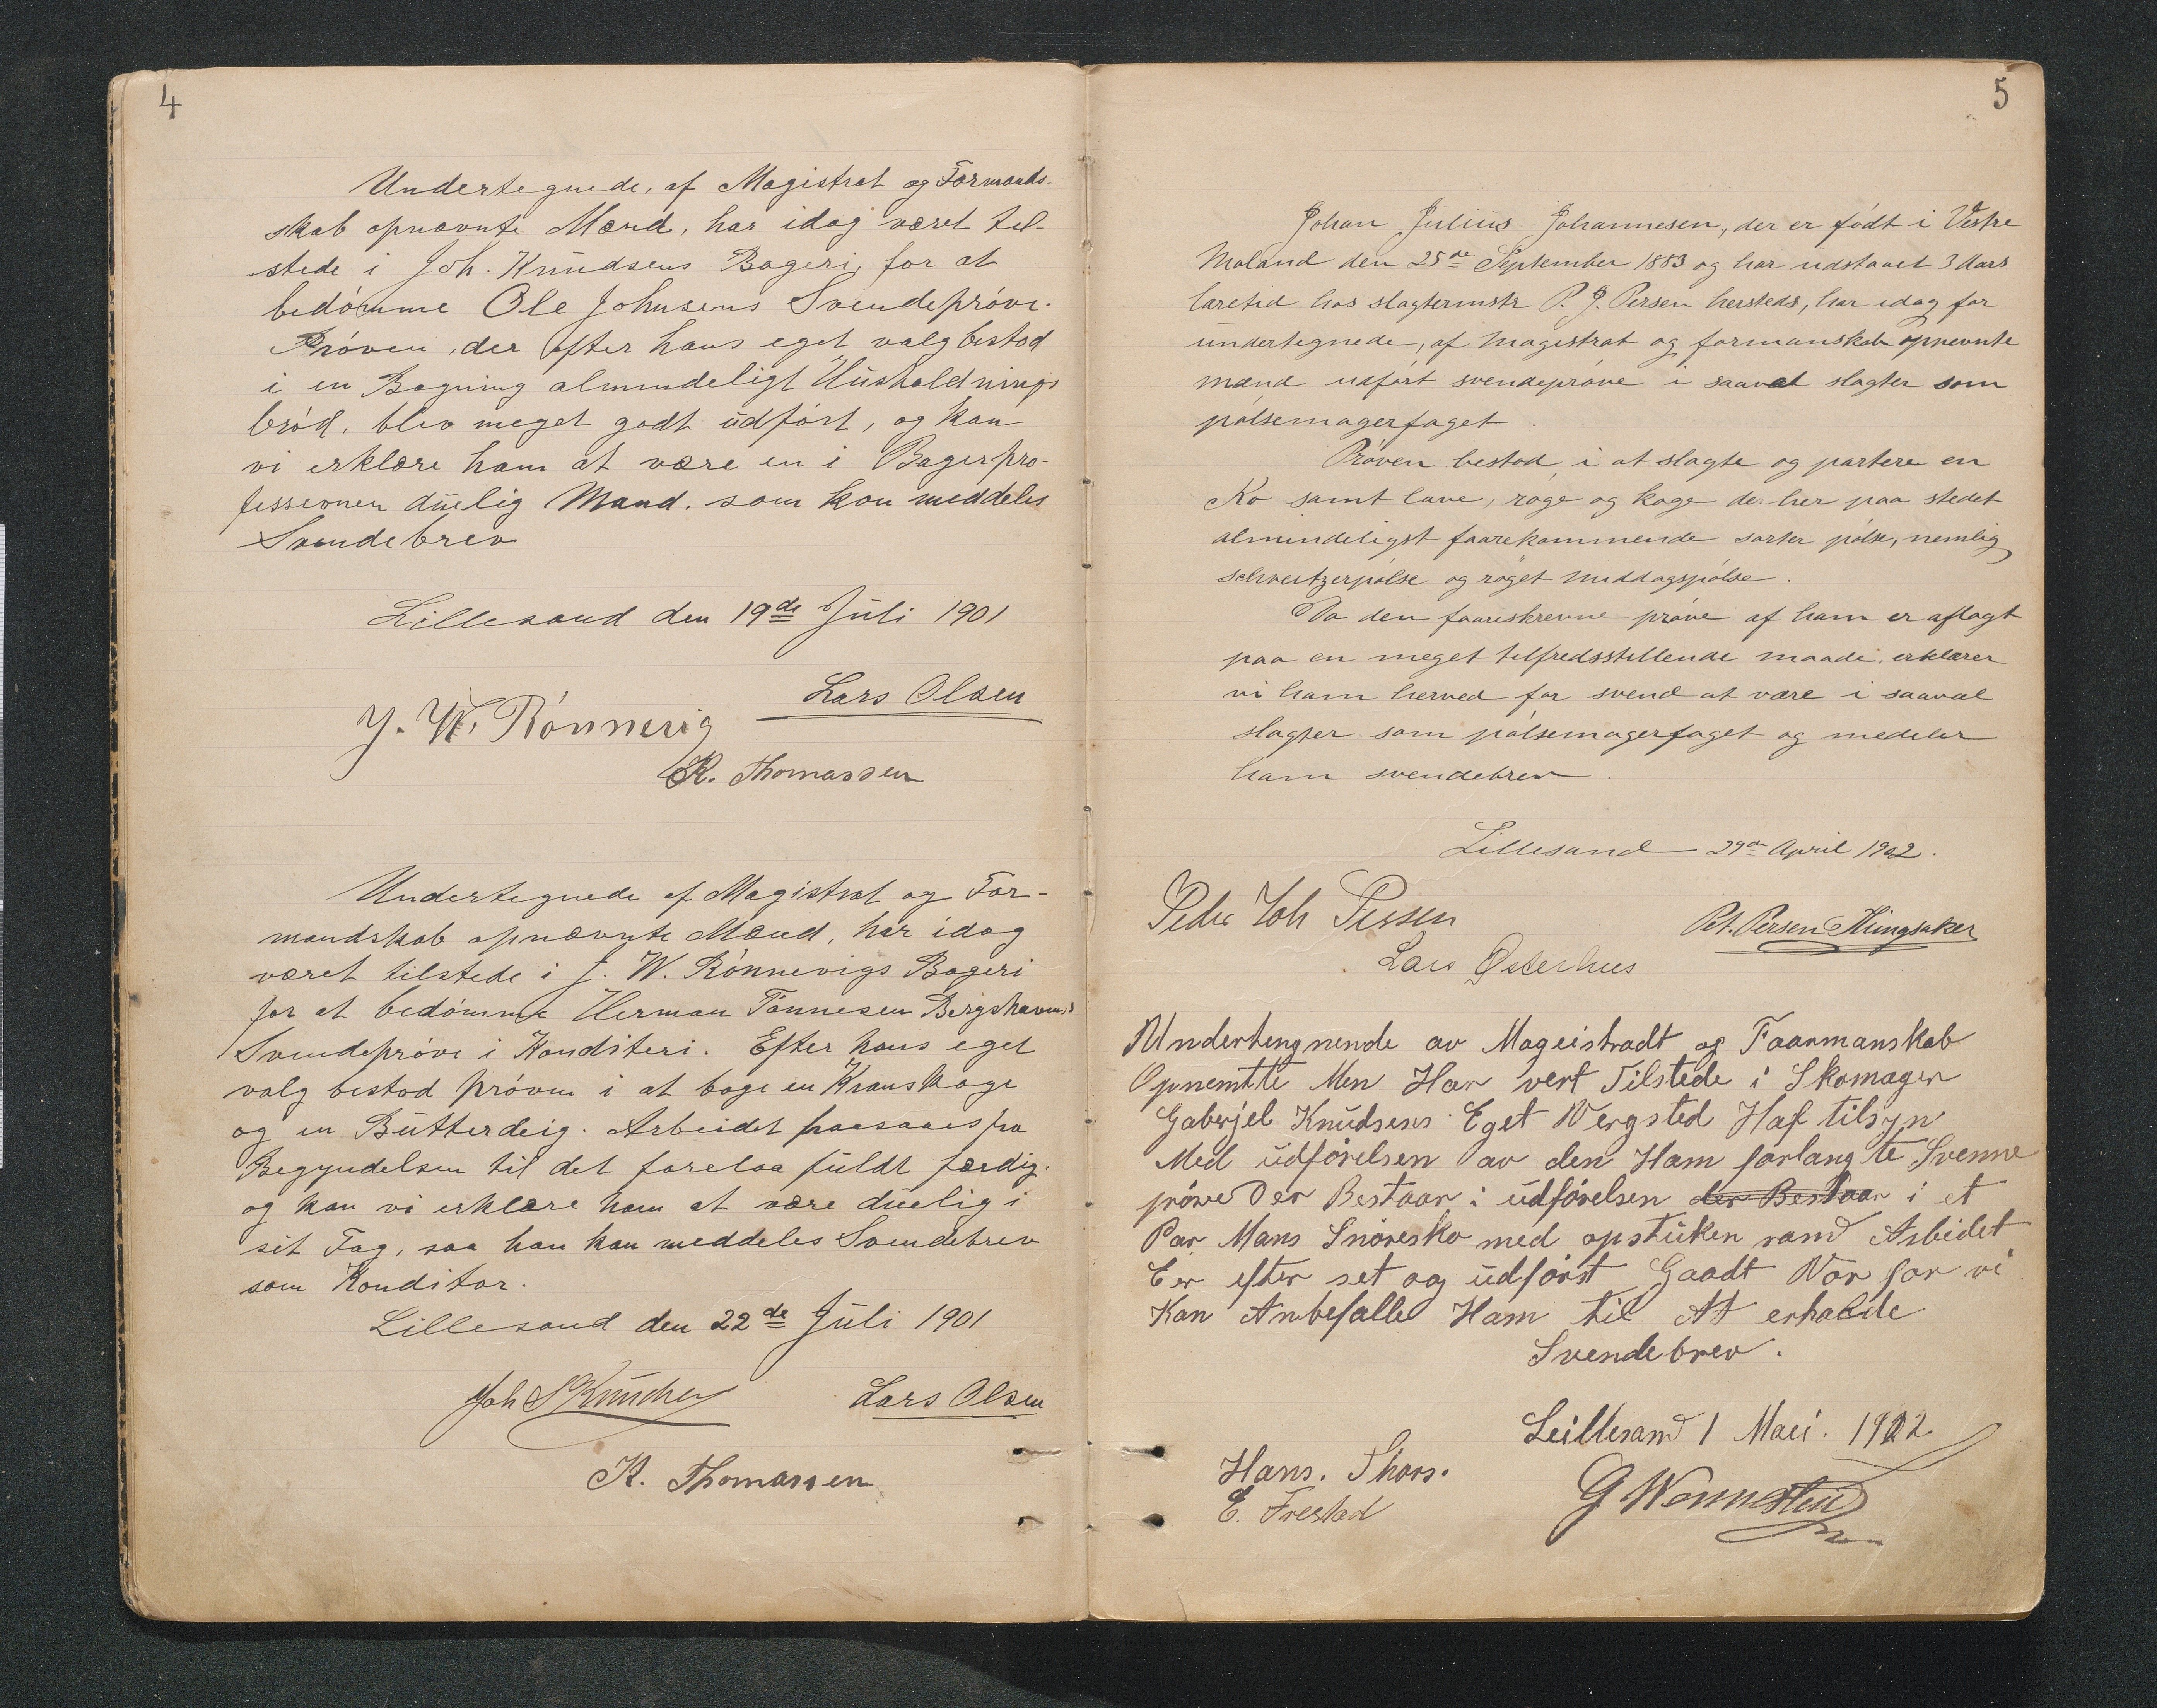 4
Undertegnede, af Magistrat og Formands-
skab opnævnte Mænd, har idag været til-
stede i Joh. Knudsens Bageri, for at
bedömme Ole Johnsens Svendepröve.
Pröven, der efter hans eget valg bestod
i en Bagning almindeligt Husholdnings
bröd, blev meget godt udfört, og kan
vi erklære ham at være en i Bagerpro-
fessionen duelig Mand, som kan meddeles
Svendebrev
Lillesand den 19de Juli 1901
Lars Olsen
J. W. Rönnevig
K. Thomassen
Undertegnede af Magistrat og For-
mandskab opnævnte Mænd, har idag
været tilstede i J. W. Rönnevigs Bageri
for at bedömme Herman Tönnesen Bergshavens
Svendepröve i Konditeri. Efter hans eget
valg bestod pröven i at bage en Kranskage
og en Butterdeig. Arbeidet paasaaes fra
Begyndelsen til det forelaa fuldt færdig.
og kan vi erklære ham at være duelig i
sit Fag, saa han kan meddeles Svendebrev
som Konditor.
Lillesand den 22de Juli 1901
Joh S Knudsen Lars Olsen
K. Thomassen
5
Johan Julius Johannesen, der er födt i Vestre
Moland den 25de September 1883 og har udstaaet 3 Aars
læretid hos slagtermstr P. J. Persen hersteds, har idag for
undertegnede, af magistrat og formanskab opnevnte
mænd udfört svendepröve i saavel slagter som
pölsemagerfaget.
Pröven bestod i at slagte og partere en
Ko samt lave, röge og koge de her paa stedet
almindeligst faarekommende sorter pölse, nemlig
schveitzerpölse og röget middagspölse.
Da den faareskrevne pröve af ham er aflagt
paa en meget tilfredsstillende maade, erklærer
vi ham herved for svend at være i saavel
slagter som pölsemagerfaget og medeler
ham svendebrev.
Lillesand 29de April 1902.
Peder Joh Persen Pet. Persen Ringsaker
Lars Østerhus
Undertengnende av Mageistradt og Faarmanskab
Opnemtte Men Har vert Tilstede i Skomager
Gaberjel Knudsens Eget Vergsted Haf tilsyn
Med udförelsen av den Ham forlangte Svenne
pröve Der Bestaar i udförelsen der Bestaar i et
Par Mans Snöresko med opstuken rand Arbeidet
Eer efter set og udförst Gaadt Vor for vi
Kan Anbefalle Ham til At erhaalde
Svendebrev.
Leillesand 1 Maei. 1902
Hans. Thors.
E. Frestad G Wennestein